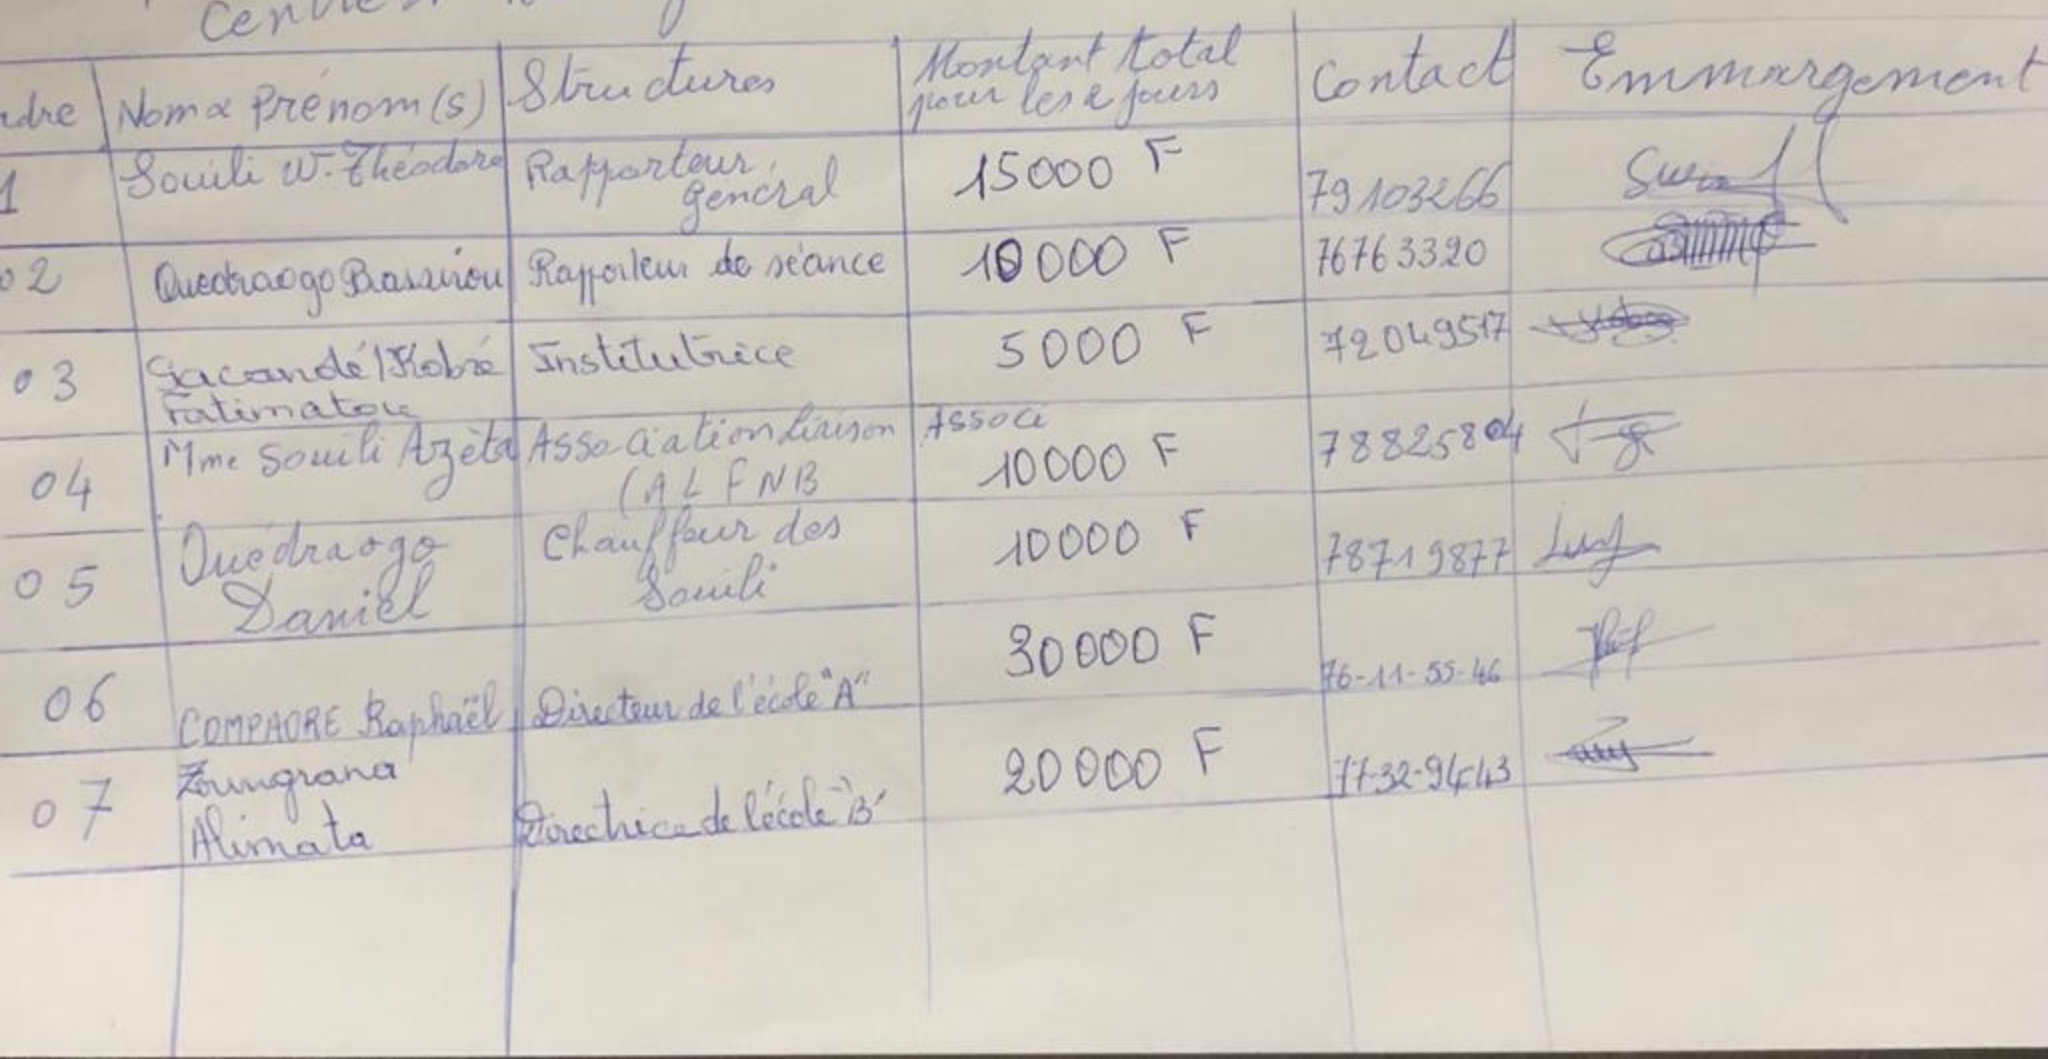 Centre
ndre Nom & Prénom(s) Structures Montant total pour les 2 jours Contact Emmargement
1 Souili W. Théodore Rapporteur général 15000 F 79103266
02 Ouedraogo Bassirou Rapporteur de séance 10000 F 76763320
03 Sacandé/Kobré Fatimatou Institutrice 5000 F 72049517
04 Mme Souili Azèta Association Liaison (ALFNB Associ 10000 F 78825804
05 Ouédraogo Daniel Chauffeur des Souili 10000 F 78719877
06 COMPAORE Raphaël Directeur de l'école "A" 30000 F 76-11-55-46
07 Zoungrana Alimata Directrice de l'école "B" 20000 F 77-32-94-43